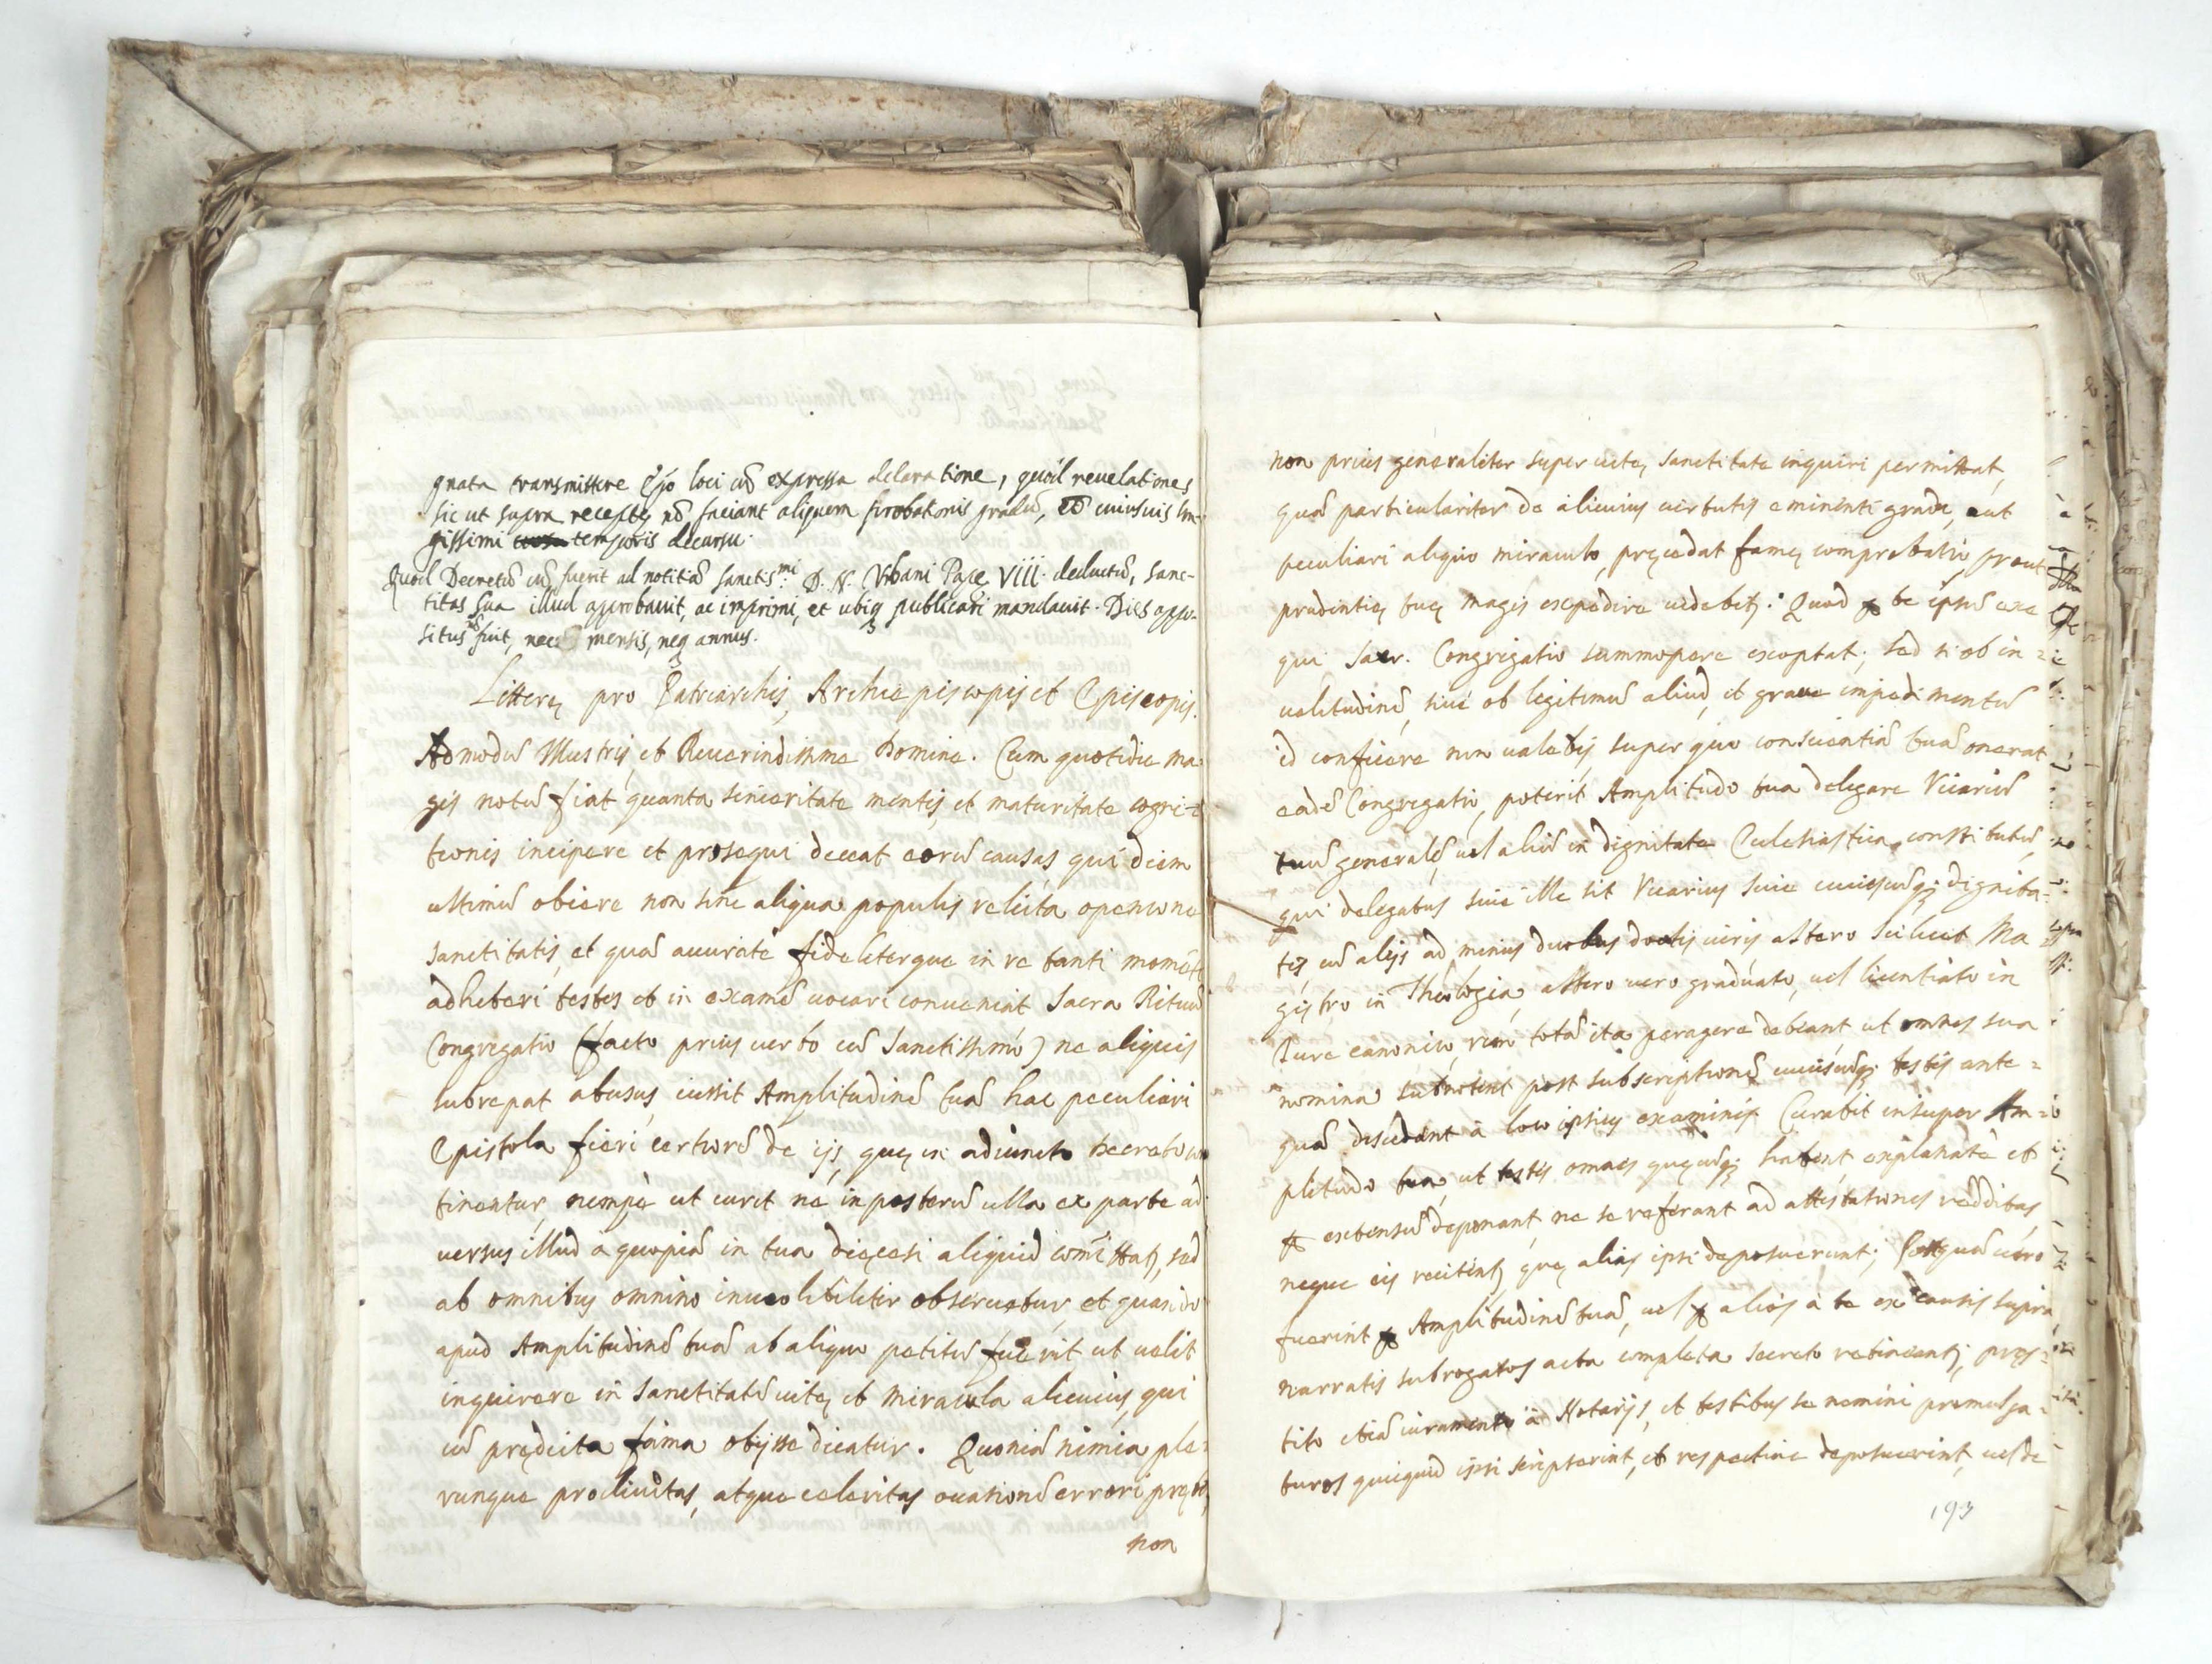 gnata transmittere Ep̃o loci cũ expressa declaratione, quod reuelationes
sic ut supra receptę nõ faciant aliquem probationis gradũ, et cuiusuis lon-
gissimi temporis decursu.
Quod Decretũ cũ fuerit ad notitiã Sanctis.mi D. N. Vrbani Papę VIII. deductũ, Sanc-
titas Sua illud approbauit, ac imprimi, et ubiq; publicari mandauit. Dies appo-
situs nõ fuit, nec mensis, neq; annus.
Litterę pro Patriarchis, Archiepiscopis et Episcopis.
Admodũ Illustris, et Reuerendissime Domine. Cum quotidie ma
gis notũ fiat quanta sinceritate mentis, et maturitate cogni=
tionis incipere et prosequi deceat eorũ causas qui diem
ultimũ obiere non sine aliqua populis relicta opinione
sanctitatis, et quã accurate fideliterque in re tanti momẽti
adhiberi testes et in examẽ uocari conueniat Sacra Rituũ
Congregatio (facto prius uerbo cũ Sanctissimo) ne aliquis
subrepat abusus, iussit Amplitudinẽ tuã hac peculiari
Epistola fieri certiorẽ de ijs, quę in adiuncto Decreto con
tinentur, nempè ut curet ne in posterũ ulla ex parte ad
uersus illud à quopiã in tua dięcesi aliquid com̃ittatr, sed
ab omnibus omnino inuiolibiliter obseruetur, et quando
apud Amplitudinẽ tuã ab aliquo petitũ fuerit ut uelit
inquirere in sanctitatẽ uitę, et miracula alicuius, qui
cũ prędicta fama obijsse dicatur. Quoniã nimia ple=
runque procliuitas, atque celeritas occasionẽ errori prębet,
non
non prius generaliter super uitę sanctitate inquiri permittat,
quã particulariter de alicuius uirtutis eminenti gradu, aut
peculiari aliquo miraculo, pręcedat famę comprobatio, prout
prudentię tuę magis expedire uidebitr. Quod per te ipsũ exe
qui Sacr. Congregatio summopere exoptat; sed si ob in=
ualitudinẽ, siue ob legitimũ aliud, et graue impedimentũ
id conficere non ualebis, super quo conscientiã tuã onerat
eadẽ Congregatio, poterit Amplitudo tua delegare Vicariũ
tuũ generalẽ, uel aliũ in dignitate Ecclesiastica constitutũ,
qui delegatus siue ille sit Vicarius siue cuiuscũq; dignita=
tis, cũ alijs ad minus duobus doctis uiris altero scilicet Ma
gistro in Theologia, altero uero graduato, uel licentiato in
Iure canonico, rem totã ita peragere debeant, ut omnes sua
nomina subnotent post subscriptionẽ cuiuscũq; testis ante=
quã discedant à loco ipsius examinis. Curabit insuper Am=
plitudo tua, ut testes omnes quęcũq; habent explanatè et
per extensũ deponant, ne se referant ad attestationes redditas,
neque eis recitentr quę alias ipsi deposuerunt; Postquã uero
fuerint per Amplitudinẽ tuã, uel per alios à te ex causis supra
narratis subrogatos acta completa secreto retineantr, pręs=
tito etiã iuramento à Notarijs, et testibus se nemini promulga=
turos quicquid ipsi scripserint, et respectiue deposuerint, uel de
193